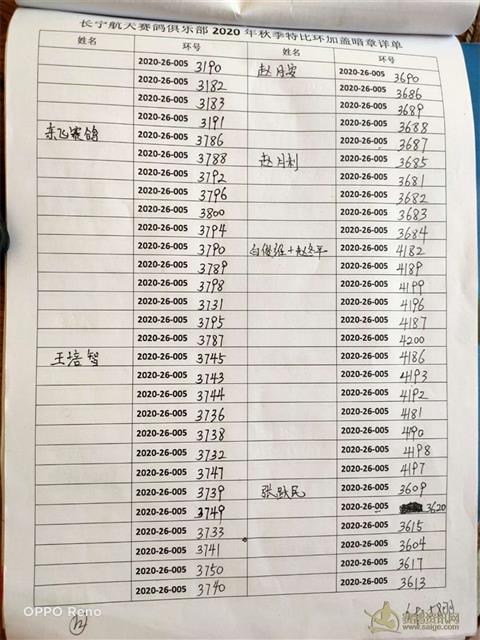 长宁航天赛鸽俱乐部 2020 年秋季特比环加盖暗章详单
姓名 环号 姓名 环号
2020-26-005 3190 赵月安 2020-26-005 3690
2020-26-005 3182 2020-26-005 3686
2020-26-005 3183 2020-26-005 3689
2020-26-005 3191 2020-26-005 3688
东飞赛鸽 2020-26-005 3786 2020-26-005 3687
2020-26-005 3788 赵月利 2020-26-005 3685
2020-26-005 3792 2020-26-005 3681
2020-26-005 3796 2020-26-005 3682
2020-26-005 3800 2020-26-005 3683
2020-26-005 3794 2020-26-005 3684
2020-26-005 3790 白俊维+赵冬平 2020-26-005 4182
2020-26-005 3789 2020-26-005 4189
2020-26-005 3798 2020-26-005 4199
2020-26-005 3731 2020-26-005 4196
2020-26-005 3795 2020-26-005 4187
2020-26-005 3787 2020-26-005 4200
王培智 2020-26-005 3745 2020-26-005 4186
2020-26-005 3743 2020-26-005 4193
2020-26-005 3744 2020-26-005 4192
2020-26-005 3736 2020-26-005 4181
2020-26-005 3738 2020-26-005 490
2020-26-005 3732 2020-26-005 4198
2020-26-005 3747 2020-26-005 4197
2020-26-005 3739 张跃民 2020-26-005 3609
2020-26-005 3749 2020-26-005 3620
2020-26-005 3733 2020-26-005 3615
2020-26-005 3741 2020-26-005 3604
2020-26-005 3750 2020-26-005 3617
2020-26-005 3740 2020-26-005 3613
OPPO Reno
赛鸽资讯网
www.saige.com